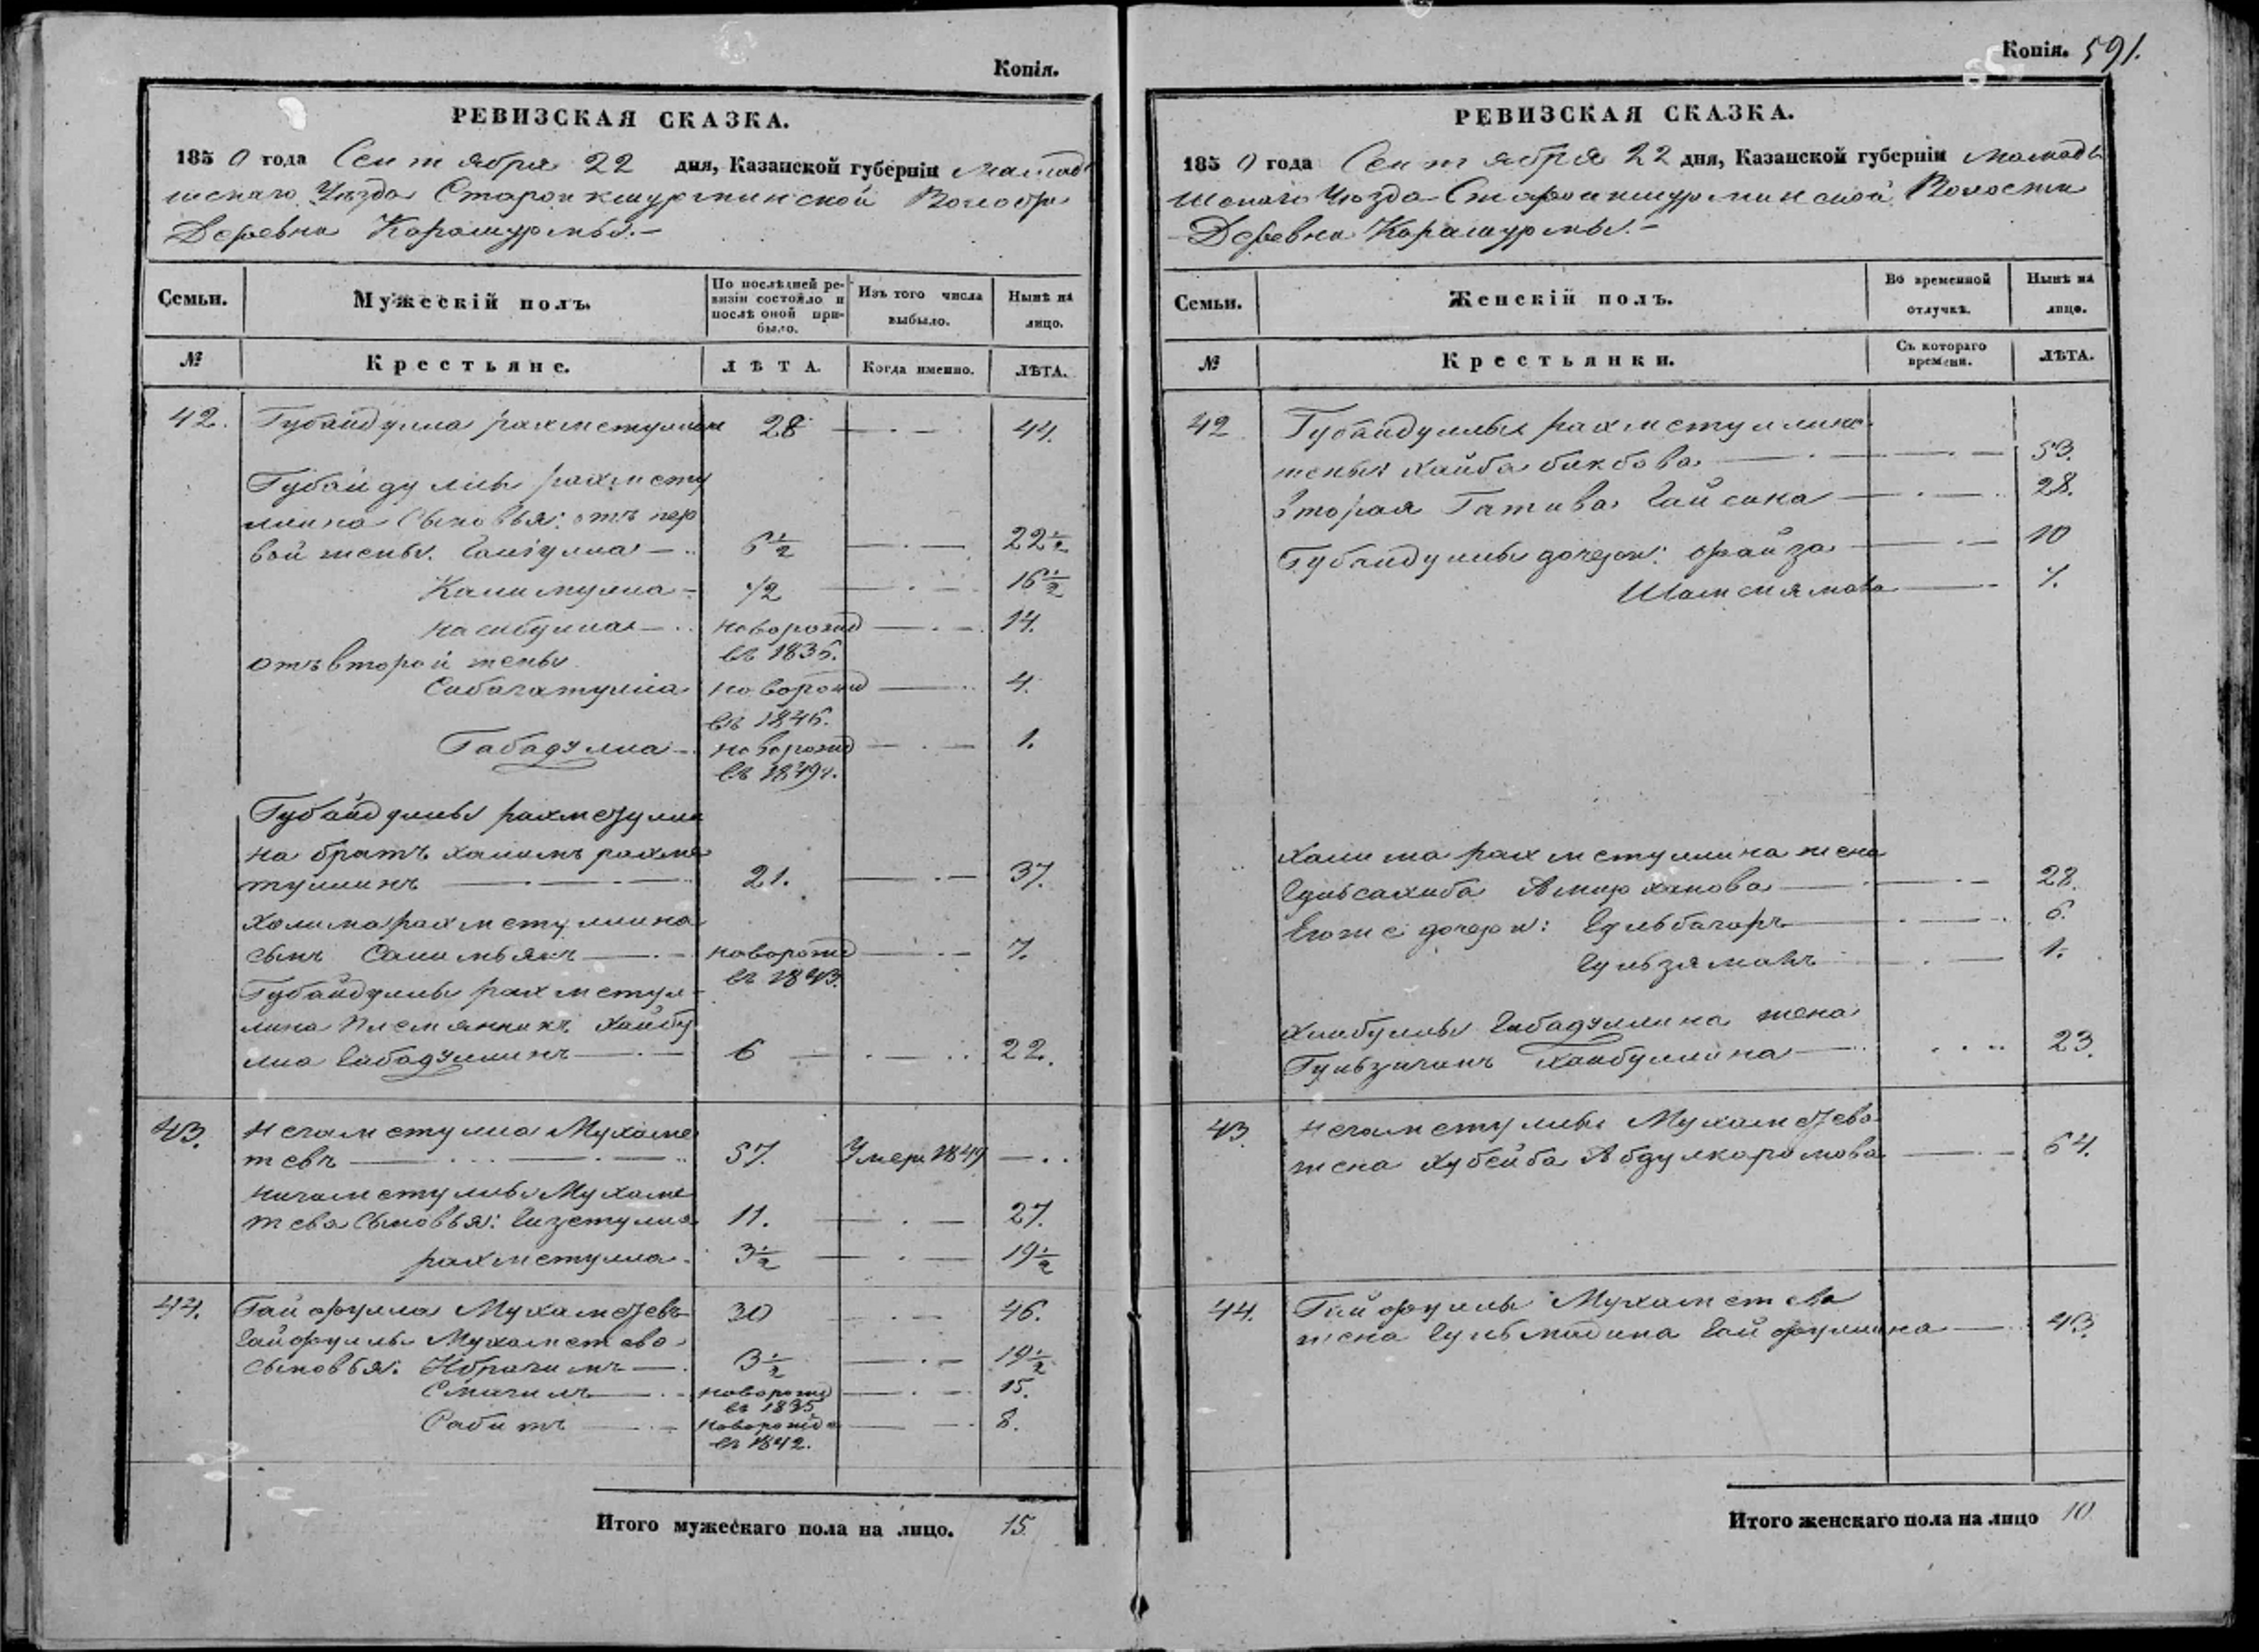 Копія.
РЕВИЗСКАЯ СКАЗКА.
1850 года Сентября 22 дня, Казанской губерніи Мамад
шскаго Уѣзда Староикшурминской Волости
Деревни Карашурмы.
Семьи.
Мужескій полъ.
По послѣдней ре-
визіи состояло и
послѣ оной при-
было.
Изъ того числа
выбыло.
Нынѣ на
лицо.
№
Крестьяне.
ЛѢТА.
Когда именно.
ЛѢТА.
42. Губайдулла рахметуллин 28 44.
Губайдуллы рахмету
ллина Сыновья: отъ пер
вой жены. Галіулла 6 1/2 22 1/2
Калимулла 1/2 16 1/2
Насибулла новорожд 14.
въ 1836.
отъ второй жены
Сабагатулла новорожд 4.
въ 1846.
Габадулла новорожд 1.
въ 1849 г.
Губайдуллы рахметулли
на братъ халимъ рахме
туллинъ 21. 37.
Халима рахметуллина
сынъ Салимьянъ новорожд 7.
въ 1843.
Губайдуллы рахметул-
лина Племянникъ Хайбу
лла Габадуллинъ 6 22.
43. Негаметулла Мухаме
тевъ 57. Умеръ 1849
Нигаметуллы Мухаме
тева Сыновья: Гизетулла 11. 27.
рахметулла 3 1/2 19 1/2
44. Гайфулла Мухаметевъ 30 46.
Гайфуллы Мухаметева
сыновья: Ибрагимъ 3 1/2 19 1/2
Смагилъ новорожд 15.
въ 1835
Сабитъ новорожде 8.
въ 1842.
Итого мужескаго пола на лицо. 15.
Копія. 591.
РЕВИЗСКАЯ СКАЗКА.
1850 года Сентября 22 дня, Казанской губерніи Мамады
шскаго Уѣзда Староикшурминской Волости
Деревни Карашурмы.
Семьи.
Женскій полъ.
Во временной
отлучкѣ.
Нынѣ на
лицо.
№
Крестьянки.
Съ котораго
времени.
ЛѢТА.
42 Губайдуллы рахметуллина
жены: хайба бикбова 53.
Вторая Гатива Гайсина 28.
Губайдуллы дочери: Файза 10
Шамсиямала 7.
Халима рахметуллина жена
Гульсахиба Амирханова 28.
Егоже дочери: Гульбагаръ 6.
Гульзяманъ 1.
Хайбуллы Габадуллина жена
Гульзиганъ Хайбуллина 23.
43. Негаметуллы Мухаметева
жена Хубейба Абдулкаримова 64.
44. Гайфуллы Мухаметева
жена Гульмадина Гайфуллина 43.
Итого женскаго пола на лицо 10